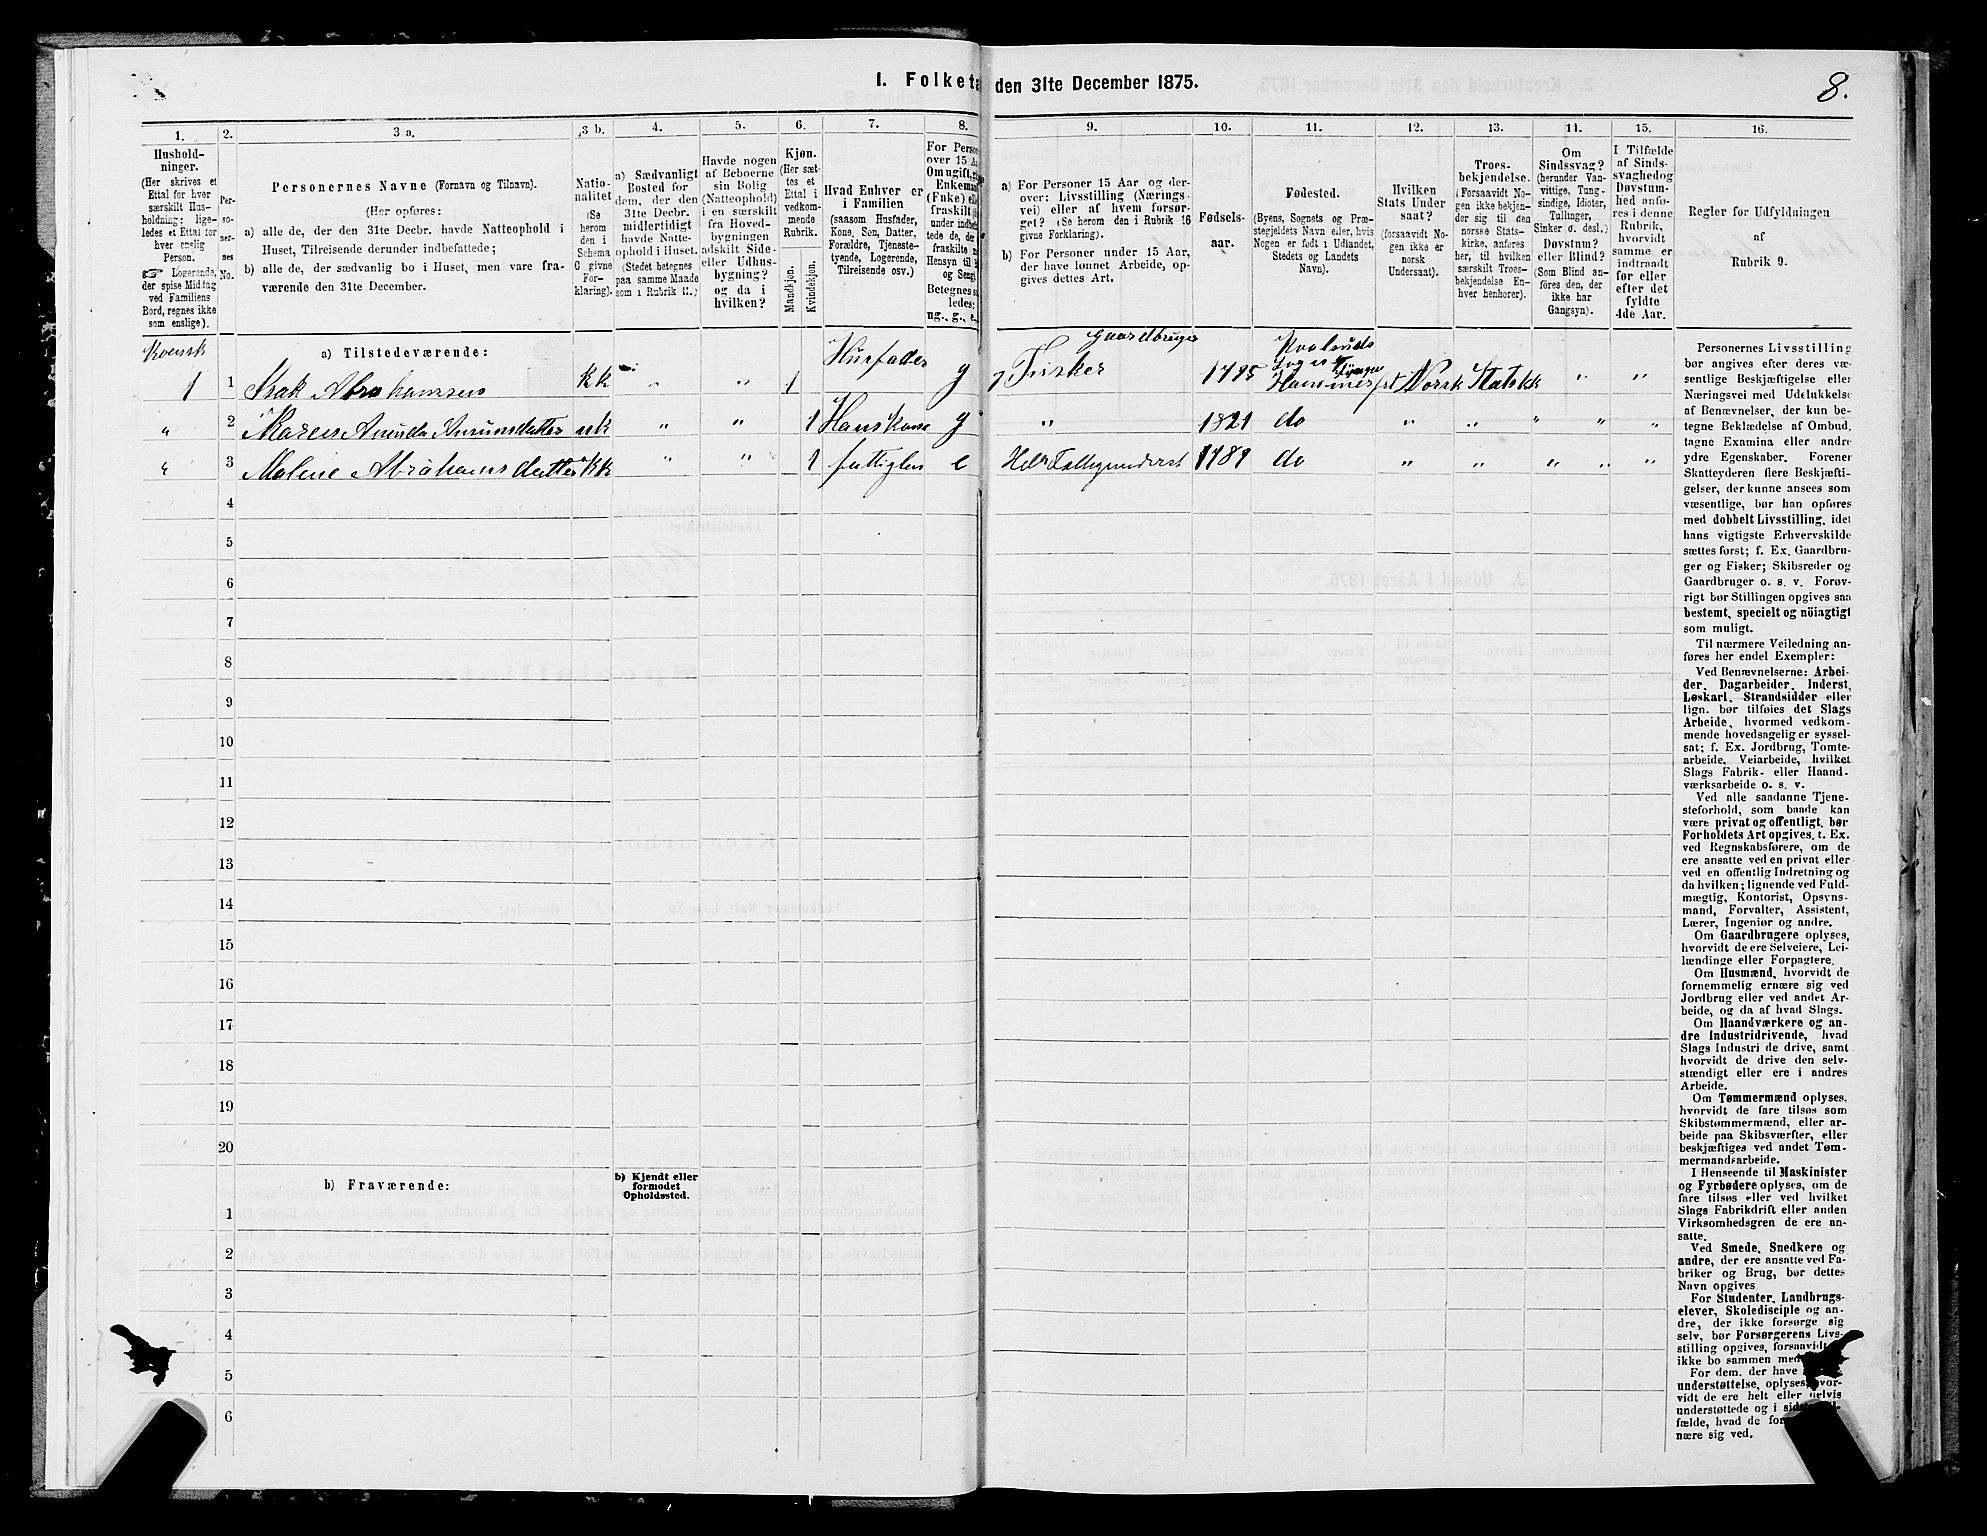 I. Folketæ den 31te December 1875.
8.
1.
Hushold-
ninger.
(Her skrives et
Ettal for hver
særskilt Hus-
holdning; lige-
ledes et Ettal for
hver enslig
Person.
☞ Logerende,
der spise Middag
ved Familiens
Bord, regnes ikke
som enslige).
2.
Per-
so-
ner-
nes
No.
3 a.
Personernes Navne (Fornavn og Tilnavn).
(Her opføres:
a) alle de, der den 31te Decbr. havde Natteophold i
Huset, Tilreisende derunder indbefattede;
b) alle de, der sædvanlig bo i Huset, men vare fra-
værende den 31te December.
3 b.
Natio-
nalitet
(Se
herom
den i
Schema
G givne
For-
klaring).
4.
a) Sædvanligt
Bosted for
dem, der den
31te Decbr.
midlertidigt
havde Natte-
ophold i Huset.
(Stedet betegnes
paa samme Maade
som i Rubrik 11.)
5.
Havde nogen
af Beboerne
sin Bolig
(Natteophold)
i en særskilt
fra Hoved-
bygningen
adskilt Side-
eller Udhus-
bygning?
og da i
hvilken?
6.
Kjøn.
(Her sæt-
tes et
Ettal i
vedkom-
mende
Rubrik.
Mandkjøn.
Kvindekjøn.
7.
Hvad Enhver er
i Familien
(saasom Husfader,
Kone, Søn, Datter,
Forældre, Tjeneste-
tyende, Logerende,
Tilreisende osv.)
8.
For Person
over 15 Aa
Om ugift, gi
Enkeman
(Enke) elle
fraskilt
ng., g., e.
9.
a) For Personer 15 Aar og der-
over: Livsstilling (Nærings-
vei) eller af hvem forsør-
get? (Se herom den i Rubrik 16
givne Forklaring).
b) For Personer under 15 Aar,
der have lønnet Arbeide, op-
gives dettes Art.
10.
Fødsels-
aar.
11.
Fødested.
(Byens, Sognets og Præ-
stegjeldets Navn eller, hvis
Nogen er født i Udlandet,
Stedets og Landets
Navn).
12.
Hvilken
Stats Under
saat?
(forsaavidt No-
gen ikke er
norsk
Undersaat).
13.
Troes-
bekjendelse.
(Forsaavidt No-
gen ikke bekjen-
der sig til den
norske Stats-
kirke, anføres
her, til hvilken
særskilt Troes-
bekjendelse En-
hver henhører).
14.
Om
Sindssvag?
(herunder Van-
vittige, Tung-
sindige, Idioter,
Tullinger,
Sinker o. desl.)
Døvstum?
eller Blind?
(Som Blind an-
føres den, der
ikke har
Gangsyn).
15.
I Tilfælde
af Sinds-
svaghed og
Døvstum-
hed anfø-
res i denne
Rubrik,
hvorvidt
samme er
indtraadt
før eller
efter det
fyldte
4de Aar.
16.
Regler for Udfyldningen
af
Rubrik 9.
a) Tilstedeværende:
1 1 Isak Abrahamsen kk " " 1 Husfader g Gaardbruger Fisker Norsk Statskk " "
" 2 nk " " 1 Hans Kone g " 1821 do " " " " "
" 3 Malene Abrahams datter kk " " 1 fattiglem e 1781 do " " " " "
4
5
6
7
8
9
10
11
12
13
14
15
16
17
18
19
20
b) Fraværende:
b) Kjendt eller
formodet
Opholdssted.
1
2
3
4
5
6
Personernes Livsstilling
bør angives efter deres væ-
sentlige Beskjæftigelse eller
Næringsvei med Udelukkelse
af Benævnelser, der kun be-
tegne Beklædelse af Ombud,
tagne Examina eller andre
ydre Egenskaber. Forener
Skatteyderen flere Beskjæfti-
gelser, der kunne ansees som
væsentlige, bør han opføres
med dobbelt Livsstilling, idet
hans vigtigste Erhvervskilde
sættes først; f. Ex. Gaardbru-
ger og Fisker; Skibsreder og
Gaardbruger o. s. v. Forøv-
rigt bør Stillingen opgives saa
bestemt, specielt og nöiagtigt
som muligt.
Til nærmere Veiledning an-
føres her endel Exempler:
Ved Benævnelserne: Arbei-
der, Dagarbeider, Inderst,
Løskarl, Strandsidder eller
lign. bør tilføies det Slags
Arbeide, hvormed vedkom-
mende hovedsagelig er syssel-
sat; f. Ex. Jordbrug, Tomte-
arbeide, Veiarbeide, hvilket
Slags Fabrik- eller Haand-
værksarbeide o. s. v.
Ved alle saadanne Tjene-
steforhold, som baade kan
være privat og offentligt, bør
Forholdets Art opgives, t. Ex.
ved Regnskabsførere, om de
ere ansatte ved en privat eller
ved en offentlig Indretning og
da hvilken; lignende ved Fuld-
mægtig, Kontorist, Opsyns-
mand, Forvalter, Assistent,
Lærer, Ingeniør og andre.
Om Gaardbrugere oplyses,
hvorvidt de ere Selveiere, Lei-
lændinge eller Forpagtere.
Om Husmænd, hvorvidt de
fornemmelig ernære sig ved
Jordbrug eller ved andet Ar-
beide, og da af hvad Slags.
Om Haandværkere og an-
dre Industridrivende, hvad
Slags Industri de drive, samt
hvorvidt de drive den selv-
stændigt eller ere i andres
Arbeide.
Om Tømmermænd oplyses,
hvorvidt de fare tilsøs som
Skibstømmermænd, eller ar-
beide paa Skibsværfter, eller
beskjæftiges ved andet Tøm-
mermandsarbeide.
I Henseende til Maskinister
og Fyrbødere oplyses, om de
fare tilsøs eller ved hvilket
Slags Fabrikdrift eller anden
Virksomhedsgren de ere an-
satte.
Ved Smede, Snedkere og
andre, der ere ansatte ved Fa-
briker og Brug, bør dettes
Navn opgives
For Studenter, Landbrugs-
elever, Skoledisciple og an-
dre, der ikke forsørge sig
selv, bør Forsørgerens Livs-
stilling opgives, forsaavidt
ikke bo sammen med
For dem, der have
understøttelse, oplyses, hvor-
vidt de ere helt eller delvis
understøttede og i
fælde, hvad de
nære sig ved.